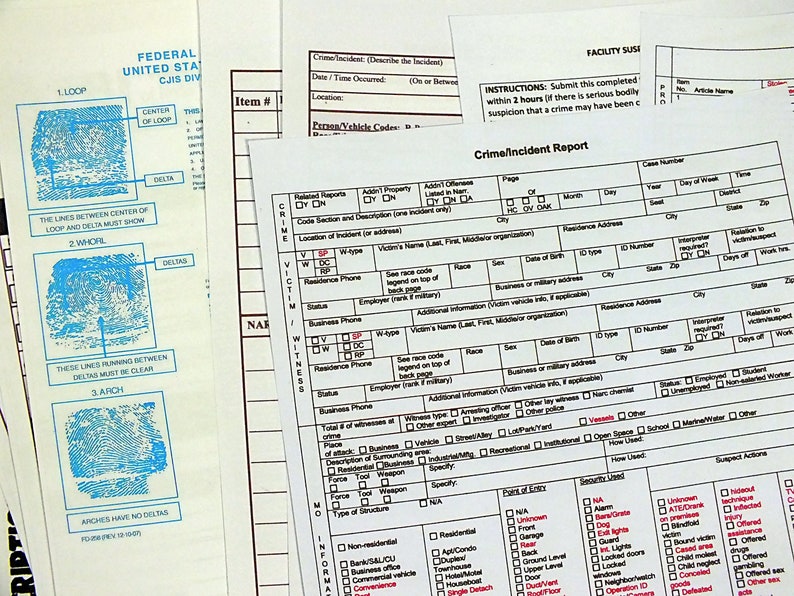 FEDERAL
UNITED STAT
CJIS DIV
1. LOOP
CENTER
OF LOOP
DELTA
THE LINES BETWEEN CENTER OF
LOOP AND DELTA MUST SHOW
2. WHORL
DELTAS
THESE LINES RUNNING BETWEEN
DELTAS MUST BE CLEAR
3. ARCH
ARCHES HAVE NO DELTAS
FD-258 (REV. 12-10-07)
THIS
Item #
NAR
Crime/Incident: (Describe the Incident)
Date / Time Occurred: (On or Betwee
Location:
Person/Vehicle Codes:
FACILITY SUSP
INSTRUCTIONS: Submit this completed
within 2 hours (if there is serious bodily
suspicion that a crime may have been c
Item
No. Article Name
1
Stolen
Crime/Incident Report
CRIME
Related Reports
Y N
Addn'l Property
Y N
Addn'l Offenses
Listed in Narr.
Y N A
Page
Of
HC OV OAK
Case Number
Month Day Year Day of Week Time
Code Section and Description (one incident only)
Seet District
Location of Incident (or address) City State Zip
VICTIM / WITNESS
V SP W-type Victim's Name (Last, First, Middle/or organization) Residence Address City State Zip
W DC
RP
Residence Phone See race code legend on top of back page Race Sex Date of Birth ID type ID Number Interpreter required? Y N Relation to victim/suspect
Status Employer (rank if military) Business or military address City State Zip Days off Work hrs.
Business Phone Additional Information (Victim vehicle info, if applicable)
V SP W-type Victim's Name (Last, First, Middle/or organization) Residence Address City State Zip
W DC
RP
Residence Phone See race code legend on top of back page Race Sex Date of Birth ID type ID Number Interpreter required? Y N Relation to victim/suspect
Status Employer (rank if military) Business or military address City State Zip Days off Work hrs.
Business Phone Additional Information (Victim vehicle info, if applicable)
MO INFORMA
Total # of witnesses at crime Witness type: Arresting officer Other lay witness Narc chemist Status: Employed Student
Other expert Investigator Other police Unemployed Non-salaried Worker
Place of attack: Business Vehicle Street/Alley Lot/Park/Yard Vessels Other
Description of Surrounding area:
Residential Business Industrial/Mftg Recreational Institutional Open Space School Marine/Water Other
Force Tool Weapon Specify: How Used:
Force Tool Weapon Specify: How Used:
Type of Structure N/A
Non-residential
Bank/S&L/CU
Business office
Commercial vehicle
Convenience
Residential
Apt/Condo
Duplex/
Townhouse
Hotel/Motel
Houseboat
Single Detach
Point of Entry
N/A
Unknown
Front
Garage
Rear
Back
Ground Level
Upper Level
Door
Duct/Vent
Roof/Floor
Security Used
NA
Alarm
Bars/Grate
Dog
Exit lights
Guard
Int. Lights
Locked doors
Locked
windows
Neighbor/watch
Operation ID
Suspect Actions
Unknown
ATE/Drank
on premises
Blindfold
victim
Bound victim
Cased area
Child molest
Child neglect
Conceled
goods
Defeated
hideout
technique
Inflected
injury
Offered
assistance
Offered
drugs
Offered
gambling
Other sex
Other sex
RIPTIO